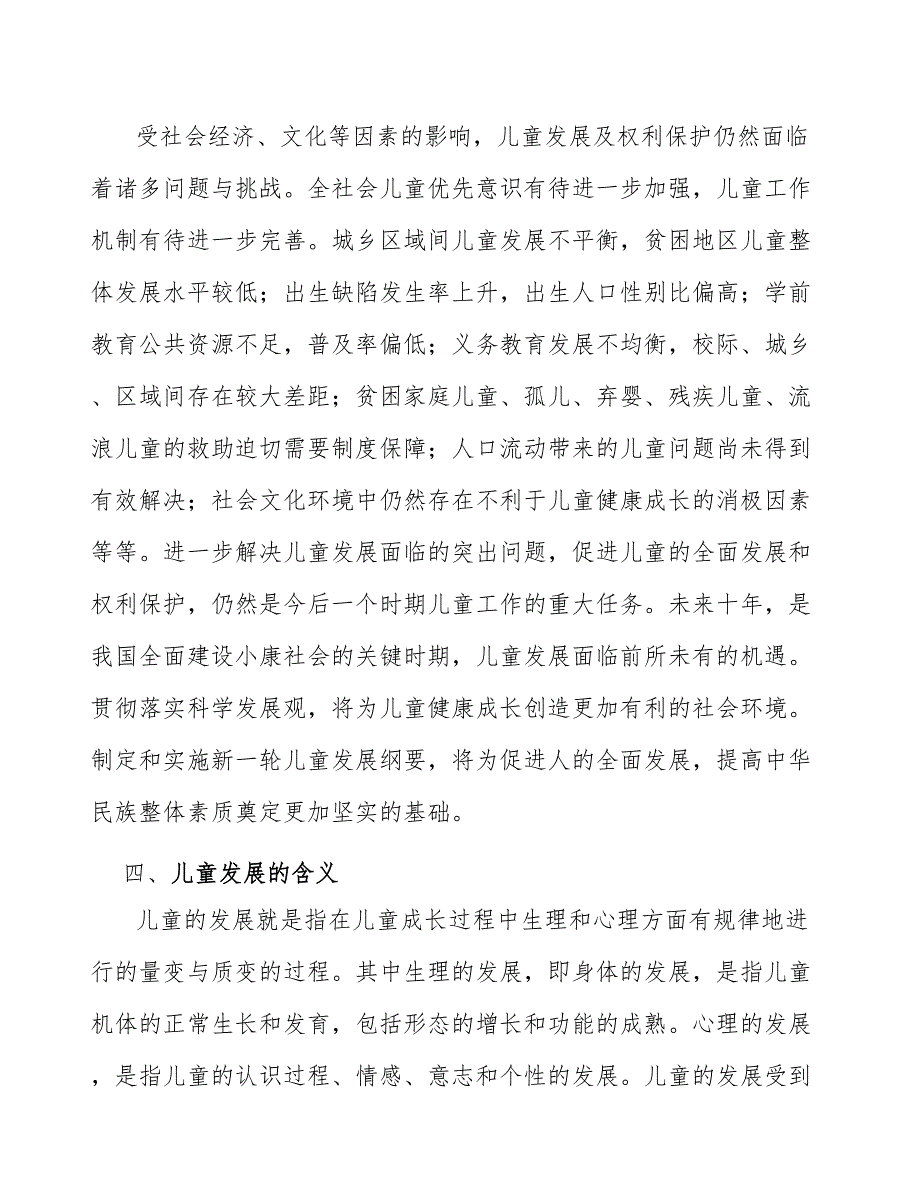 受社会经济、文化等因素的影响，儿童发展及权利保护仍然面临
着诸多问题与挑战。全社会儿童优先意识有待进一步加强，儿童工作
机制有待进一步完善。城乡区域间儿童发展不平衡，贫困地区儿童整
体发展水平较低；出生缺陷发生率上升，出生人口性别比偏高；学前
教育公共资源不足，普及率偏低；义务教育发展不均衡，校际、城乡
、区域间存在较大差距；贫困家庭儿童、孤儿、弃婴、残疾儿童、流
浪儿童的救助迫切需要制度保障；人口流动带来的儿童问题尚未得到
有效解决；社会文化环境中仍然存在不利于儿童健康成长的消极因素
等等。进一步解决儿童发展面临的突出问题，促进儿童的全面发展和
权利保护，仍然是今后一个时期儿童工作的重大任务。未来十年，是
我国全面建设小康社会的关键时期，儿童发展面临前所未有的机遇。
贯彻落实科学发展观，将为儿童健康成长创造更加有利的社会环境。
制定和实施新一轮儿童发展纲要，将为促进人的全面发展，提高中华
民族整体素质奠定更加坚实的基础。
四、儿童发展的含义
儿童的发展就是指在儿童成长过程中生理和心理方面有规律地进
行的量变与质变的过程。其中生理的发展，即身体的发展，是指儿童
机体的正常生长和发育，包括形态的增长和功能的成熟。心理的发展
，是指儿童的认识过程、情感、意志和个性的发展。儿童的发展受到